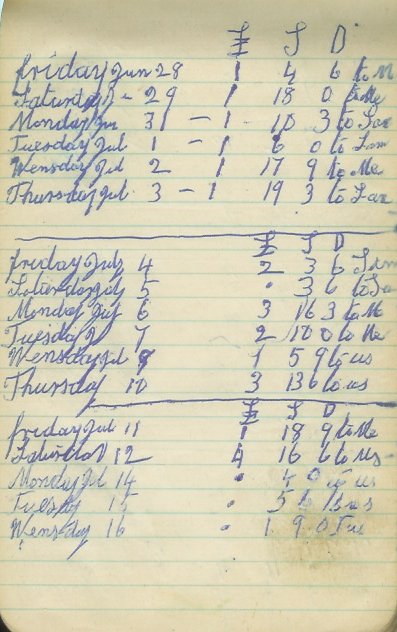 £ S D
friday Jun 28 1 4 6 to M
Saturday Jn 29 1 18 0 to Me
Monday Jn 31 - 1 10 3 to
Tuesday Jul 1 - 1 6 0 to
Wensday Jul 2 1 17 9 to Me
Thursday Jul 3 - 1 19 3 to
£ S D
friday July 4 2 3 6
Saturday July 5 . 3 6 to
Monday July 6 3 16 3 to Me
Tuesday J 7 2 10 0 to Me
Wensday Jul 1 5 9 to us
Thursday 10 3 13 6 to us
£ S D
friday Jul 11 1 18 9 to Me
Saturda 12 4 16 6 to us
Monday Jul 14 . 4 0 to us
Tuesday 15 5 6 to us
Wensday 16 . 1 9 0